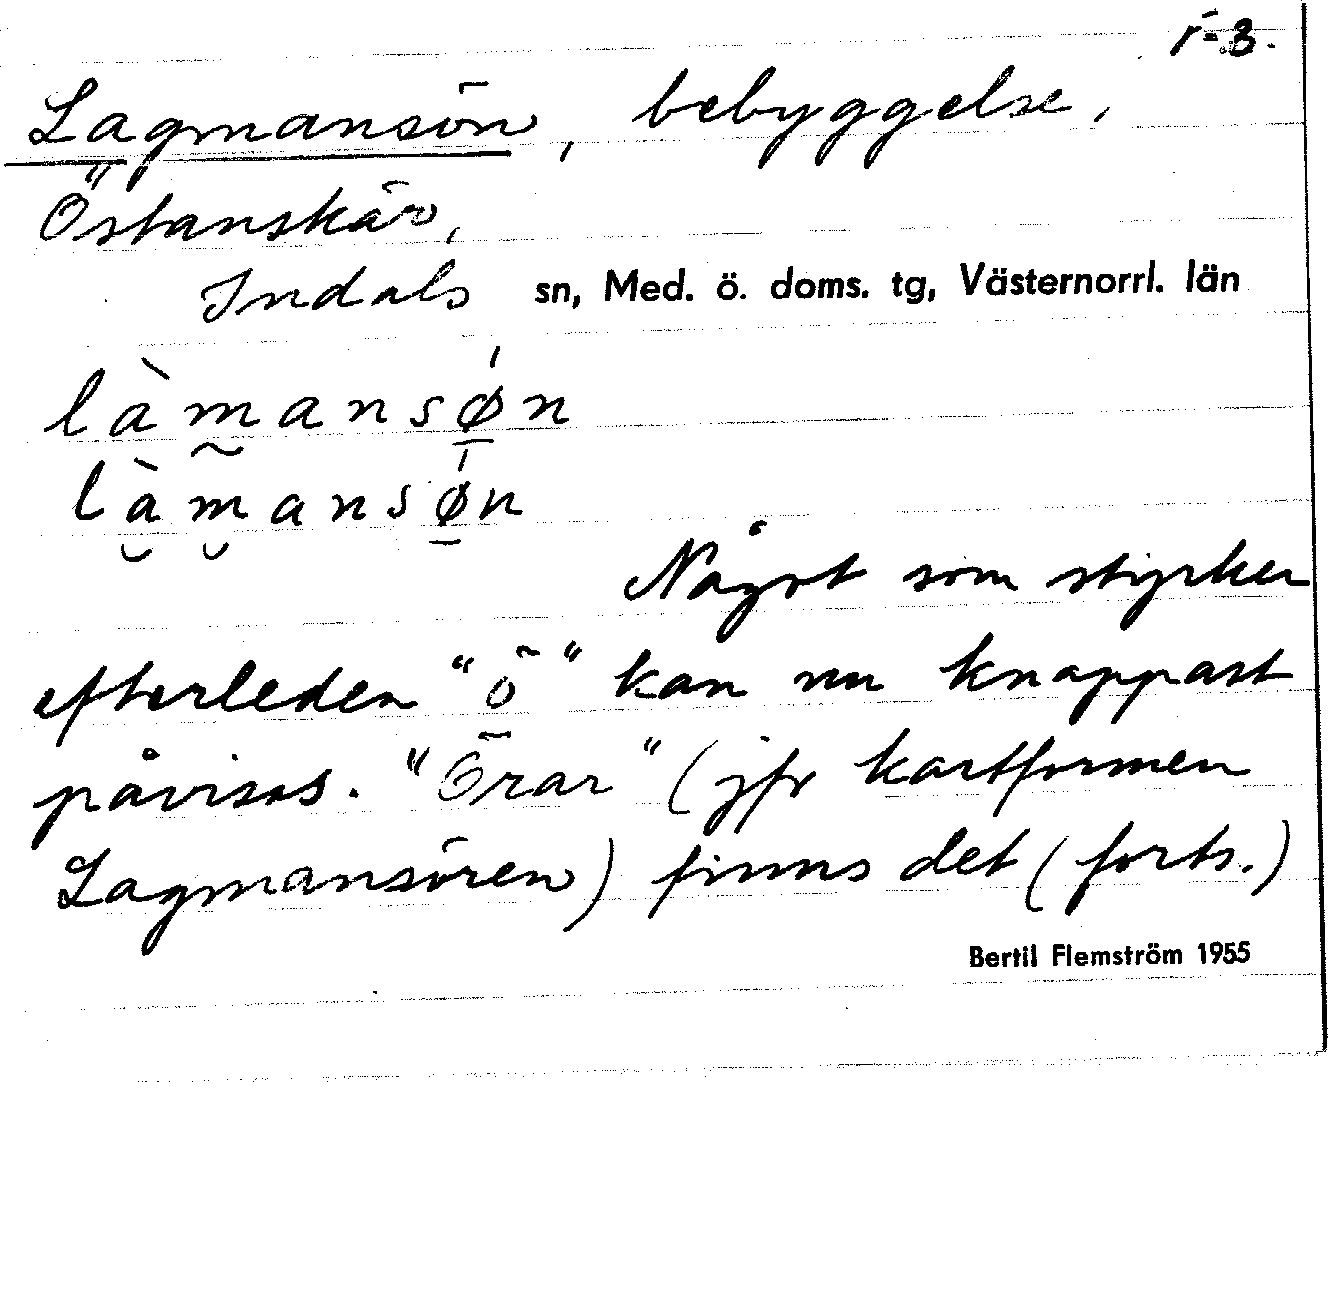 1-3.
Lagmansön, bebyggelse,
Östanskär,
Indals sn, Med. ö. doms. tg, Västernorrl. län
làmansǿn
làmansǿn
Något som styrker
efterleden "ö" kan nu knappast
påvisas. "Örar" (jfr kartformen
Lagmansören) finns det (forts.)
Bertil Flemström 1955